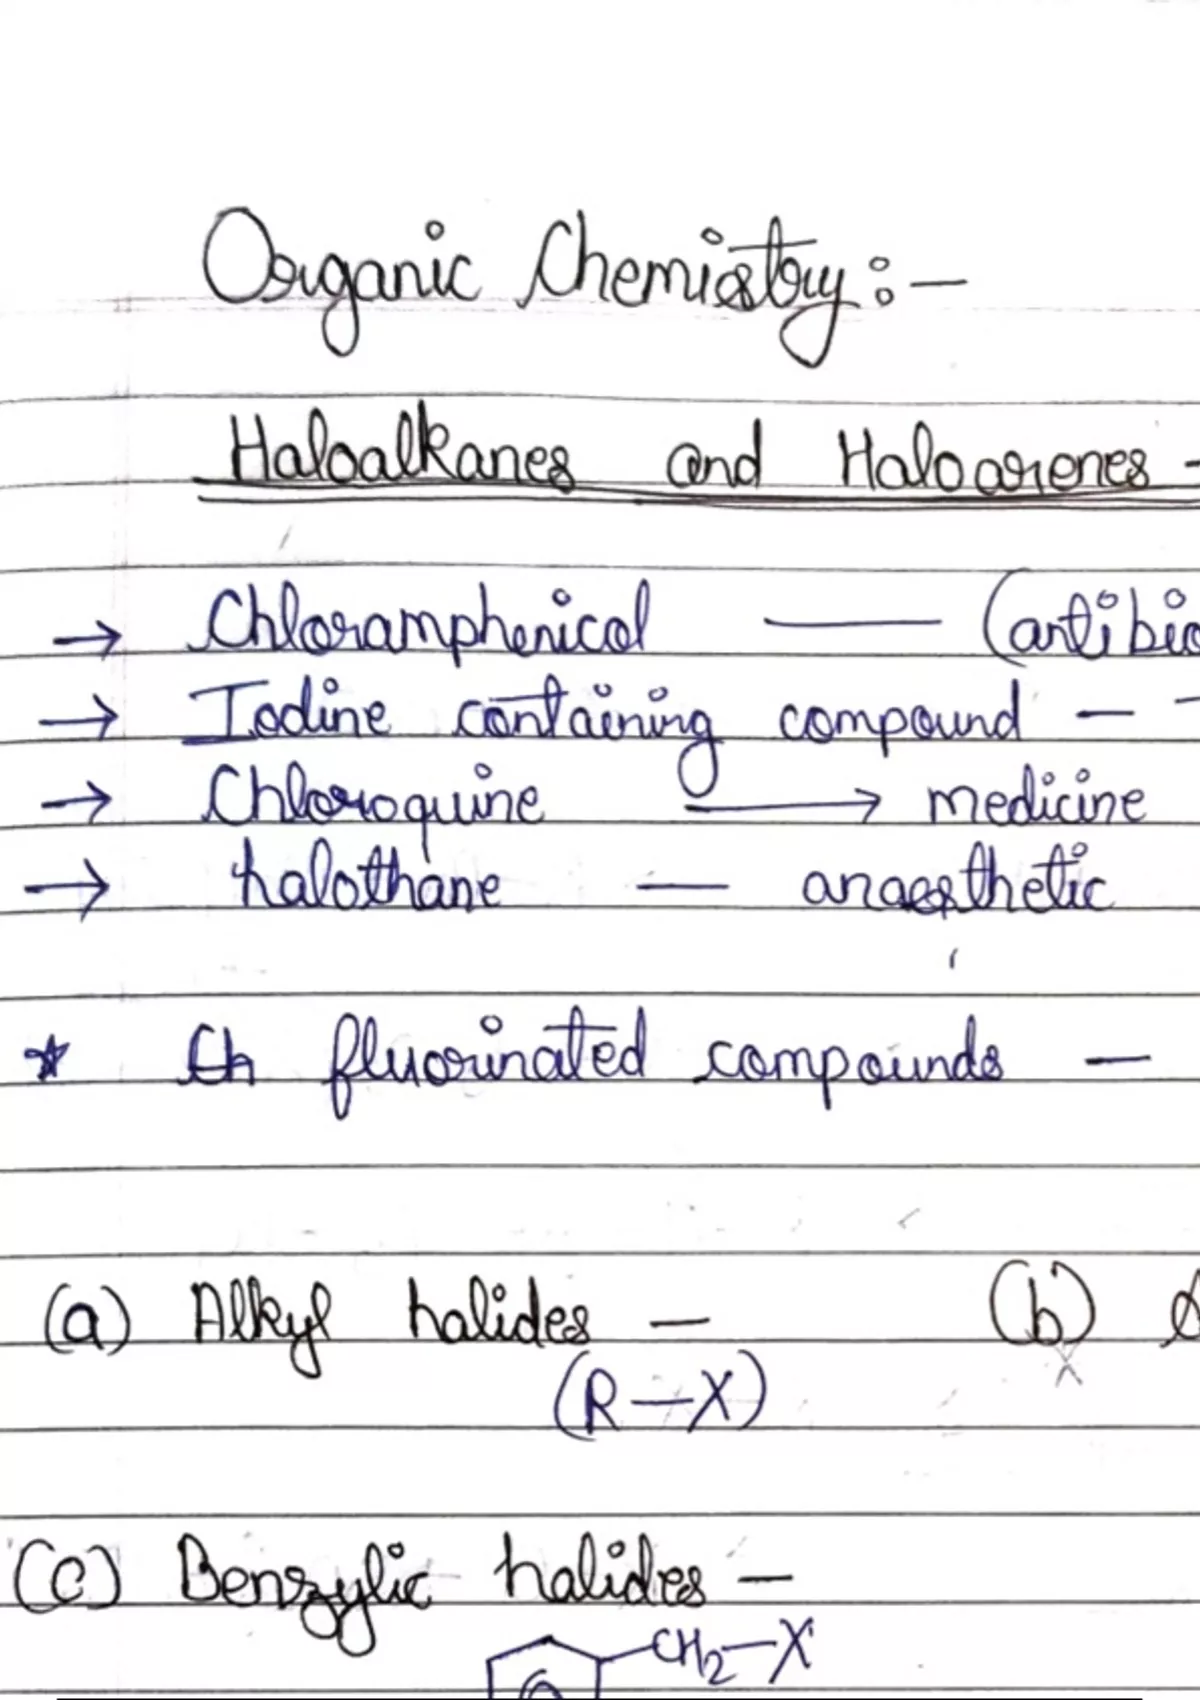 Organic Chemistry :-
Haloalkanes and Haloarenes -
→ Chloramphenicol — (antibio
→ Iodine containing compound - -
→ Chloroquine → medicine
→ halothane — anaesthetic
* fluorinated compounds —
(a) Alkyl halides — (b)
(R-X)
(c) Benzylic halides —
CH2-X